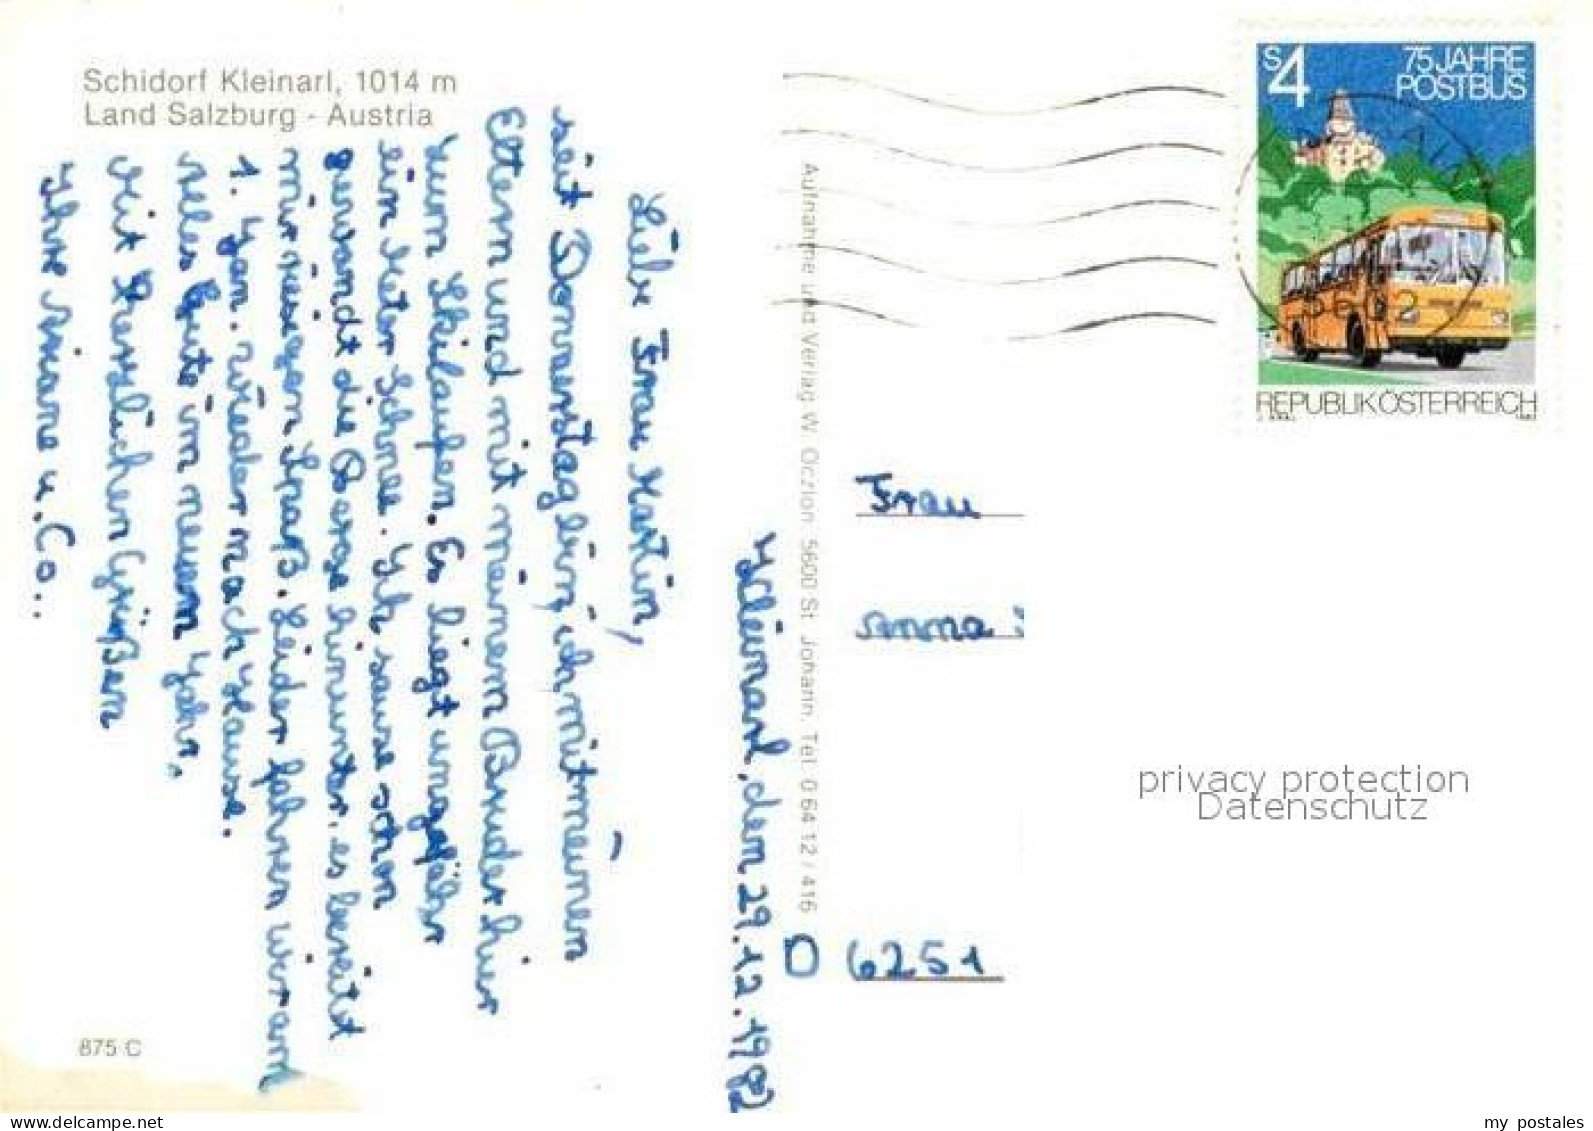 Schidorf Kleinarl, 1014 m
Land Salzburg - Austria
Kleinarl, dem 29.12.1982
Liebe Frau Martin,
seit Donnerstag bin ich mit meinen
Eltern und mit meinem Bruder hier
zum Skilaufen. Es liegt ungefähr
ein Meter Schnee. Ich sause schon
gewandt die Berge hinunter, es bereitet
mir riesigen Spaß. Leider fahren wir am
1. Jan. wieder nach Hause.
Alles Gute im neuen Jahr,
Mit herzlichen Grüßen
Ihre Ariane u. Co..
875 C
Aufnahme und Verlag W. Oczlon 5600 St. Johann, Tel. 0 64 12 / 416
S4
75 JAHRE
POSTBUS
REPUBLIK ÖSTERREICH
5602
Frau
Anna
D 6251
privacy protection
Datenschutz
my postales